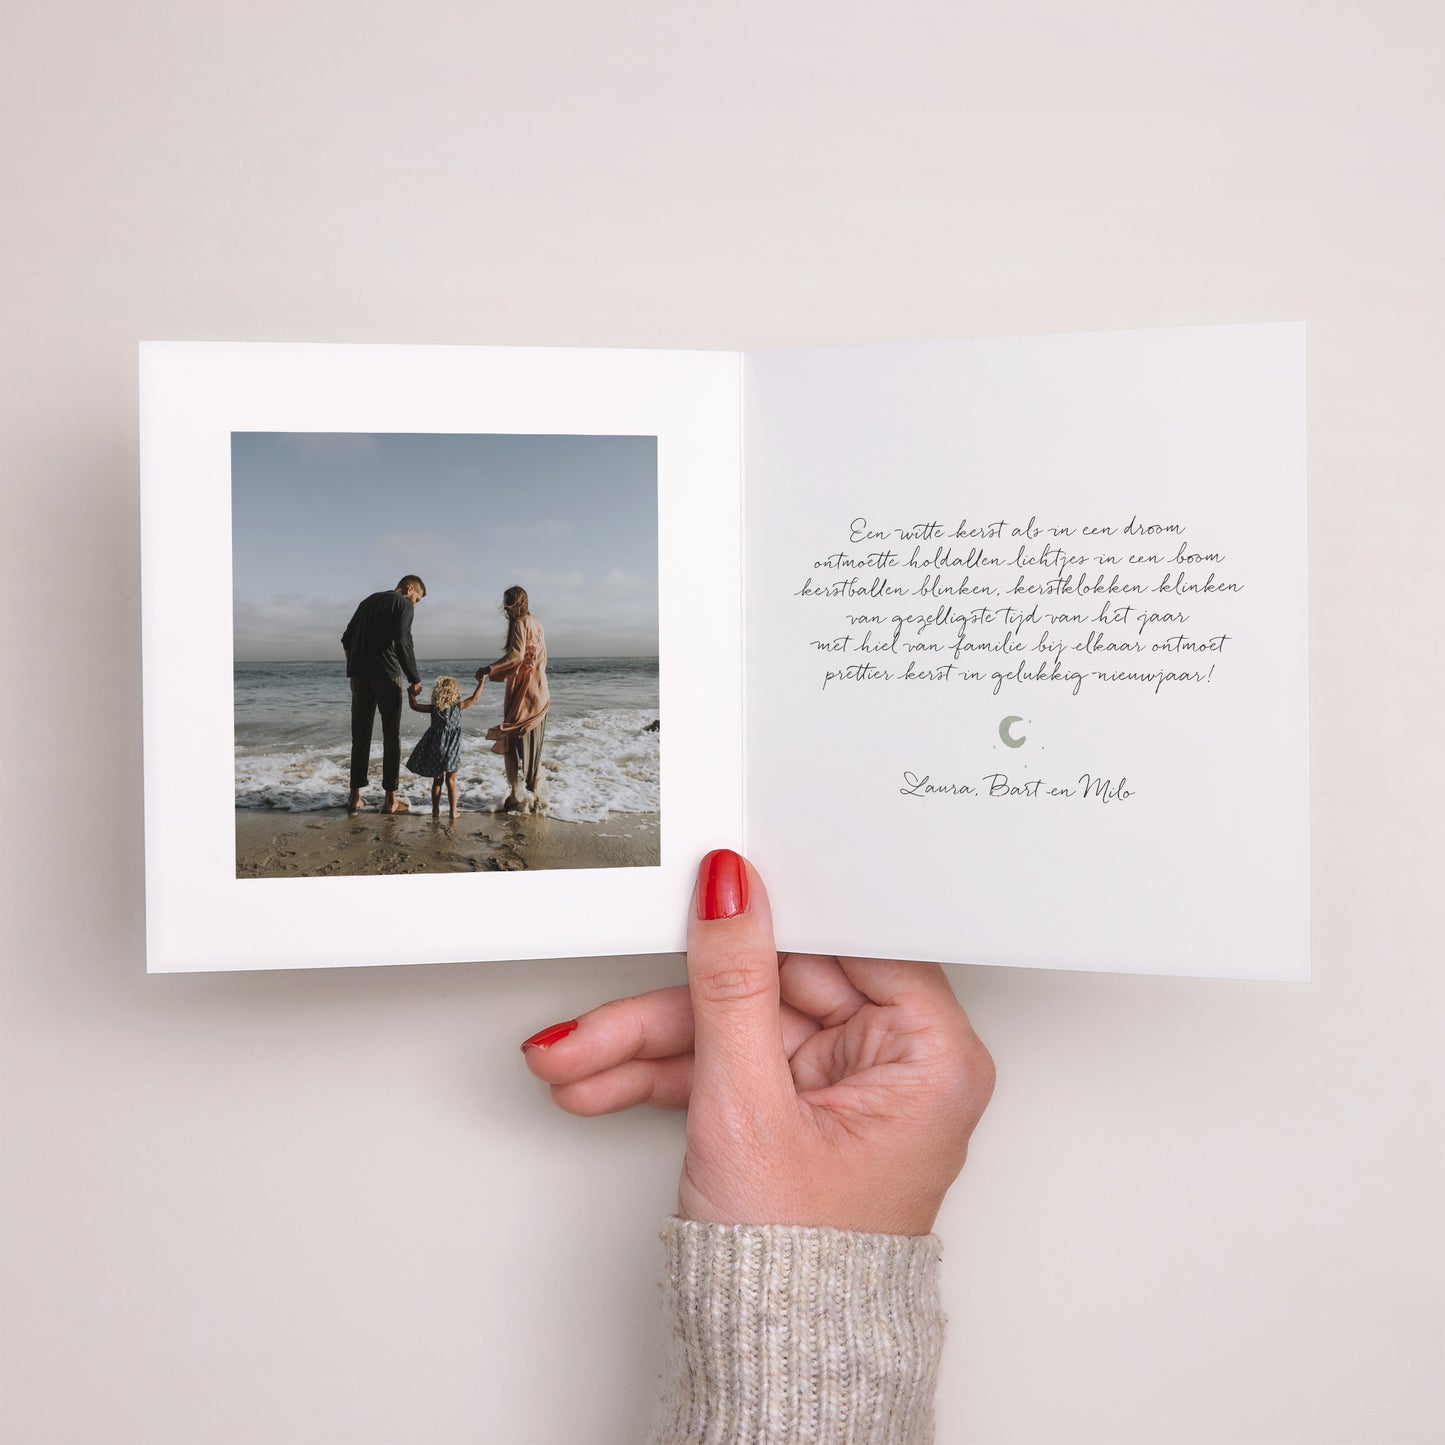 Een witte kerst als in een droom
ontmoette holdallen lichtjes in een boom
kerstballen blinken, kerstklokken klinken
van gezelligste tijd van het jaar
met hiel van familie bij elkaar ontmoet
prettier kerst in gelukkig nieuwjaar!
Laura, Bart en Milo